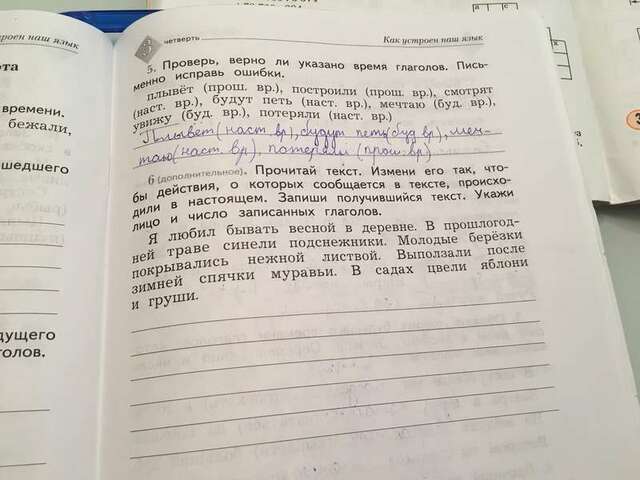 роен наш язык
ота
времени.
бежали,
ошедшего
дущего
голов.
3 четверть
Как устроен наш язык
5. Проверь, верно ли указано время глаголов. Пись-
менно исправь ошибки.
плывёт (прош. вр.), построили (прош. вр.), смотрят
(наст. вр.), будут петь (наст. вр.), мечтаю (буд. вр.),
увижу (буд. вр.), потеряли (наст. вр.)
Плывёт (наст. вр), будут петь (буд вр), меч-
таю (наст. вр), потеряли (прош. вр)
6 (дополнительное). Прочитай текст. Измени его так, что-
бы действия, о которых сообщается в тексте, происхо-
дили в настоящем. Запиши получившийся текст. Укажи
лицо и число записанных глаголов.
Я любил бывать весной в деревне. В прошлогод-
ней траве синели подснежники. Молодые берёзки
покрывались нежной листвой. Выползали после
зимней спячки муравьи. В садах цвели яблони
и груши.